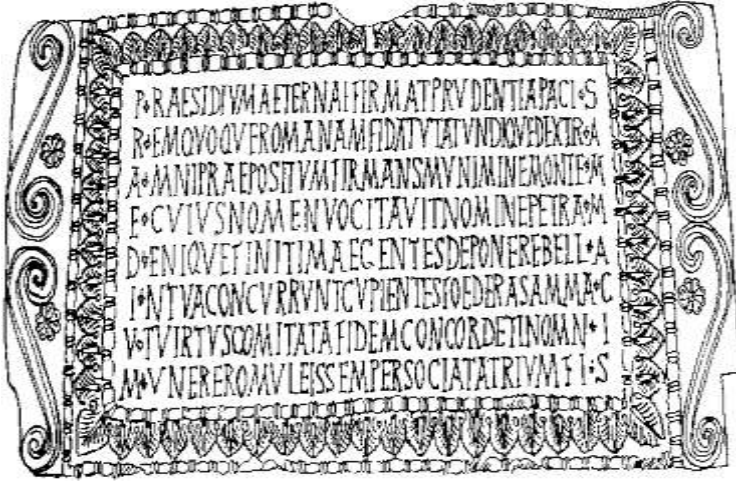 P⬥RAESIDIVMAETERNAEFIRMATPRVDENTIAPACI⬥S
R⬥EMQVOQVEROMANAMFIDATVTATVNDIQVEDEXTR⬥A
A⬥MNIPRAEPOSITVMFIRMANSMVNIMINEMONTE⬥M
E⬥CVIVSNOMENVOCITAVITNOMINEPETRA⬥M
D⬥ENIQVEFINITIMAEGENTESDEPONEREBELL⬥A
I⬥NTVACONCVRRVNTCVPIENTESFOEDERASAMMA⬥C
V⬥TVIRTVSCOMITATAFIDEMCONCORDETINOMN⬥I
M⬥VNEREROMVLEISSEMPERSOCIATATRIVMFI⬥S